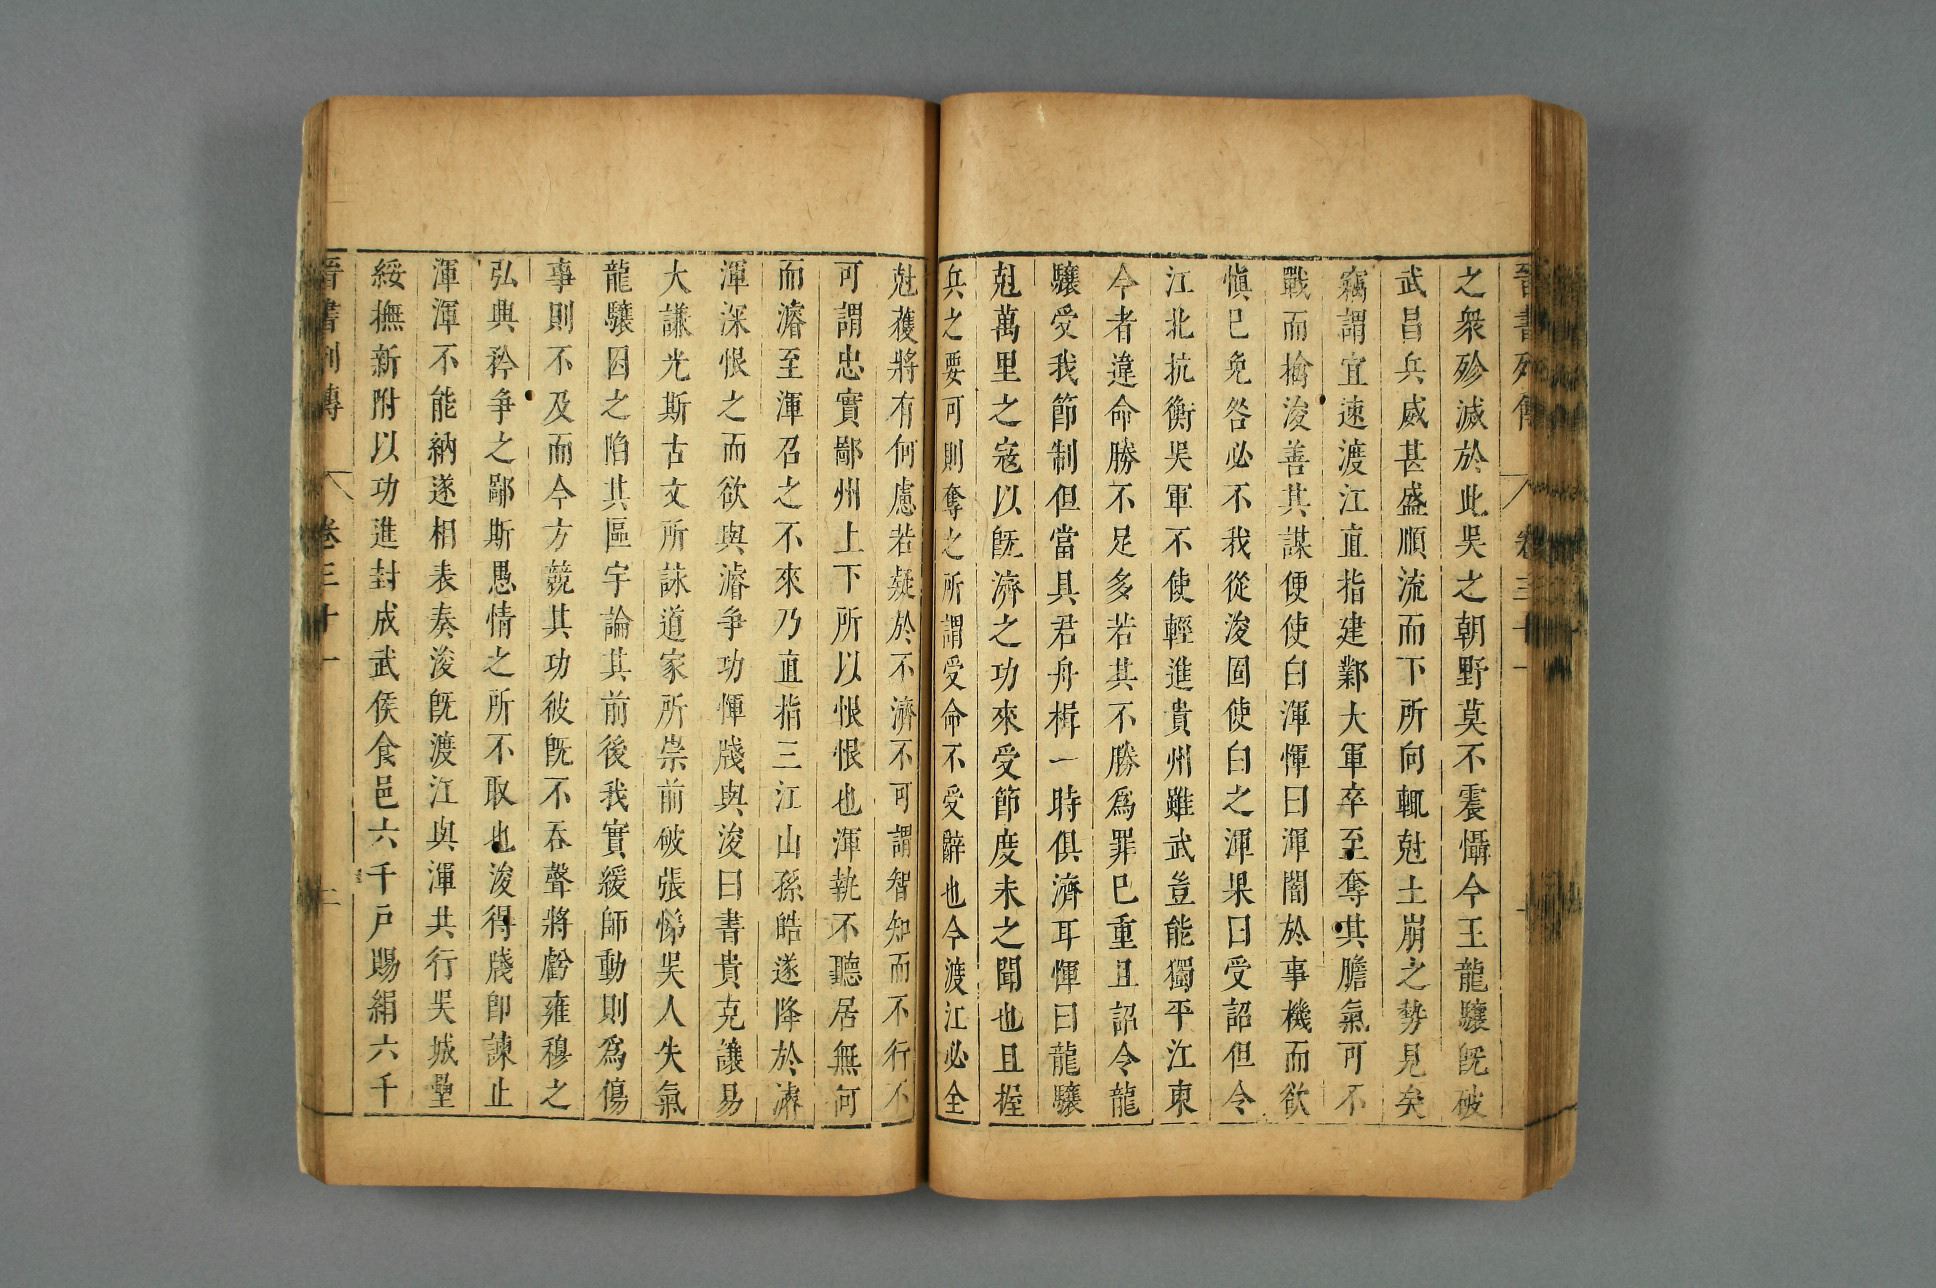 晉書列傳 卷三十一 一
之衆殄滅於此吳之朝野莫不震懾今王龍驤旣破
武昌兵威甚盛順流而下所向輒尅土崩之勢見矣
竊謂宜速渡江直指建鄴大軍卒至奪其膽氣可不
戰而擒浚善其謀便使白渾惲曰渾闇於事機而欲
愼已免咎必不我從浚固使白之渾果曰受詔但令
江北抗衡吳軍不使輕進貴州雖武豈能獨平江東
今者違命勝不足多若其不勝爲罪已重且詔令龍
驤受我節制但當具君舟楫一時俱濟耳惲曰龍驤
尅萬里之寇以旣濟之功來受節度未之聞也且握
兵之要可則奪之所謂受命不受辭也今渡江必全
尅獲將有何慮若疑於不濟不可謂智知而不行不
可謂忠實鄙州上下所以恨恨也渾執不聽居無何
而濬至渾召之不來乃直指三江山孫皓遂降於濬
渾深恨之而欲與濬爭功惲牋與浚曰書貴克讓易
大謙光斯古文所詠道家所崇前破張悌吳人失氣
龍驤因之陷其區宇論其前後我實緩師動則爲傷
事則不及而今方競其功彼旣不吞聲將虧雍穆之
弘典矜爭之鄙斯愚情之所不取也浚得牋卽諫止
渾渾不能納遂相表奏浚旣渡江與渾共行吳城壘
綏撫新附以功進封成武侯食邑六千戶賜絹六千
晉書列傳 卷三十一 二